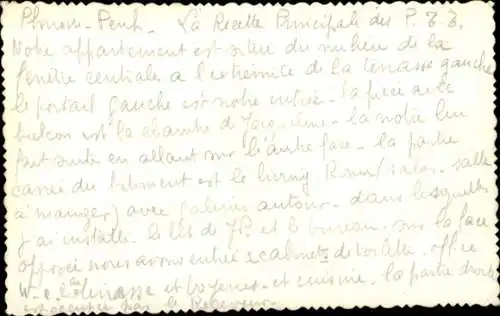 Phnom-Penh - La Recette Principale des P.T.T.
Notre appartement est situé du milieu de la
fenêtre centrale a l'extremite de la terrasse gauche
le portail gauche est notre entrée - la pièce avec
balcon est la chambre de Jacqueline - la notre lui
fait suite en allant sur l'autre face - la partie
carrée du batiment est le living Room (salon, salle
à manger) avec galeries autour - dans lesquelles
j'ai installé le lit de JP. et le bureau - sur la face
opposée nous avons entrée cabinets de toilette - office
W-c terrasse et - et cuisine - la partie droite
est occupée par le Receveur